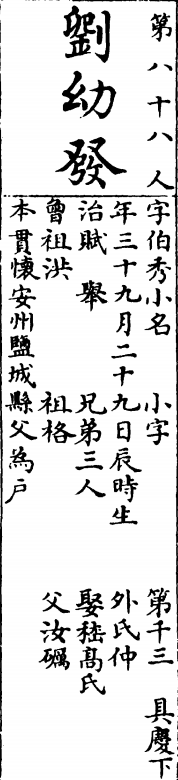 第八十八人
劉幼發
字伯秀小名　小字　第千三　具慶下
年三十九月二十九日辰時生　外氏仲
治賦　舉　兄弟三人　娶嵇髙氏
曾祖洪　祖格　父汝礪
本貫懷安州鹽城縣父為戶